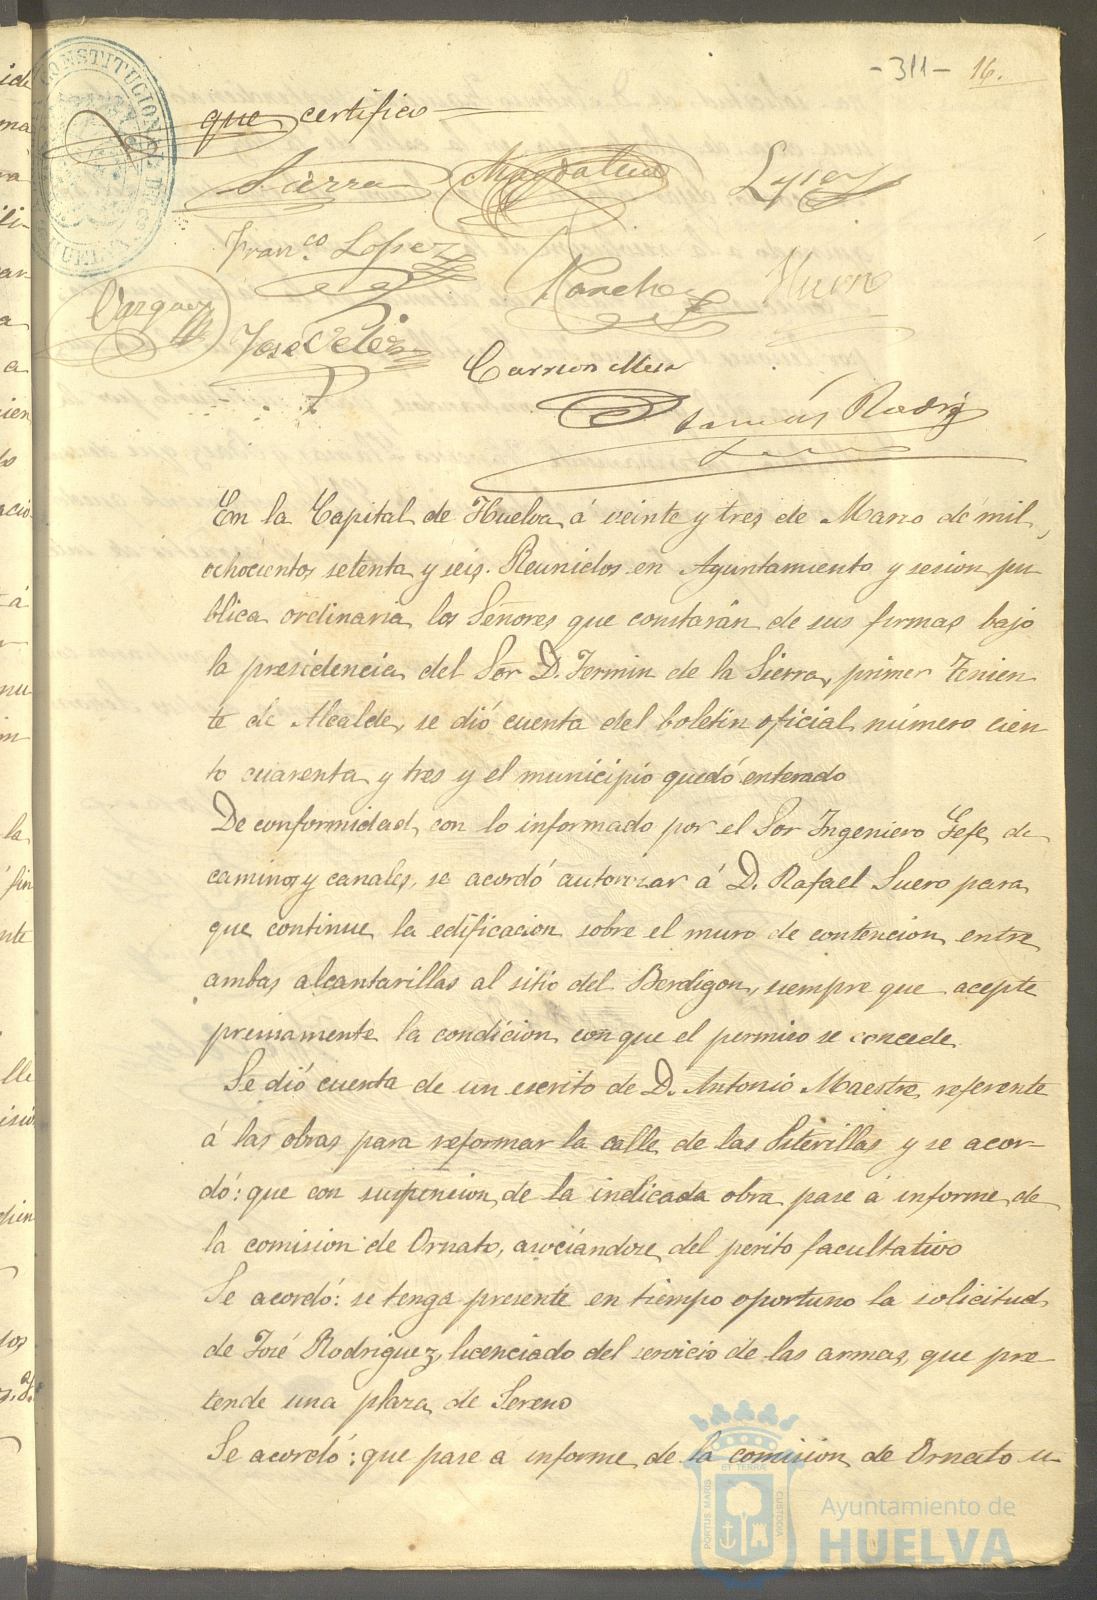 -311- 16.
que certifico
Sierra Magdalena Lopez
Franco. Lopez
Sanchez
Vazquez
José Velez
Carrion Mesa
Tomás Rodrig
En la Capital de Huelva á veinte y tres de Marzo de mil
ochocientos setenta y seis. Reunidos en Ayuntamiento y sesion pu
blica ordinaria los Señores que constarán de sus firmas bajo
la presidencia del Sor D. Fermin de la Sierra, primer Tenien
te de Alcalde, se dió cuenta del boletin oficial número cien
to cuarenta y tres y el municipio quedó enterado
De conformidad con lo informado por el Sor Ingeniero Gefe de
caminos y canales, se acordó autorizar á D. Rafael Suero para
que continue la edificacion sobre el muro de contencion entre
ambas alcantarillas al sitio del Berdigon, siempre que acepte
previamente la condicion con que el permiso se concede
Se dió cuenta de un escrito de D. Antonio Maestre referente
á las obras para reformar la calle de las Siterillas y se acor-
dó: que con suspension de la indicada obra pase á informe de
la comision de Ornato, asociándose del perito facultativo
Se acordó: se tenga presente en tiempo oportuno la solicitud
de José Rodriguez, licenciado del servicio de las armas, que pre-
tende una plaza de Sereno
Se acordó: que pase á informe de la comision de Ornato u-
Ayuntamiento de
HUELVA
PORTUS MARIS
ET TERRÆ
CUSTODIA